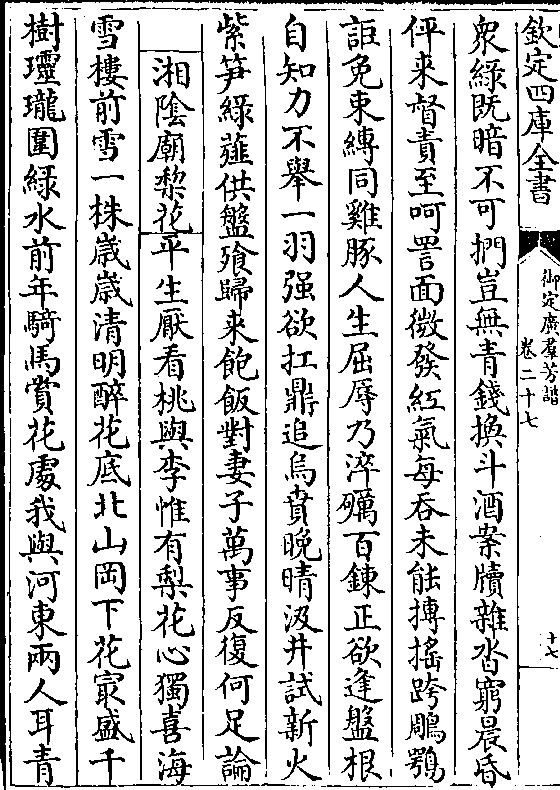 欽定四庫全書
御定廣羣芳譜
卷二十七
十七
衆綠既暗不可捫豈無青錢換斗酒案牘雜沓窮晨昏
伻来督責至呵詈面微發紅氣每吞未能摶搖跨鵰鶚
詎免束縛同雞豚人生屈辱乃淬礪百鍊正欲逢盤根
自知力不舉一羽强欲扛鼎追烏賁晚晴汲井試新火
紫笋綠薤供盤飱歸来飽飯對妻子萬事反復何足論
湘陰廟棃花平生厭看桃與李惟有梨花心獨喜海
雪棲前雪一株歲歲清明醉花底北山岡下花㝡盛千
樹瓏瓏圍綠水前年騎馬賞花處我與河東兩人耳青